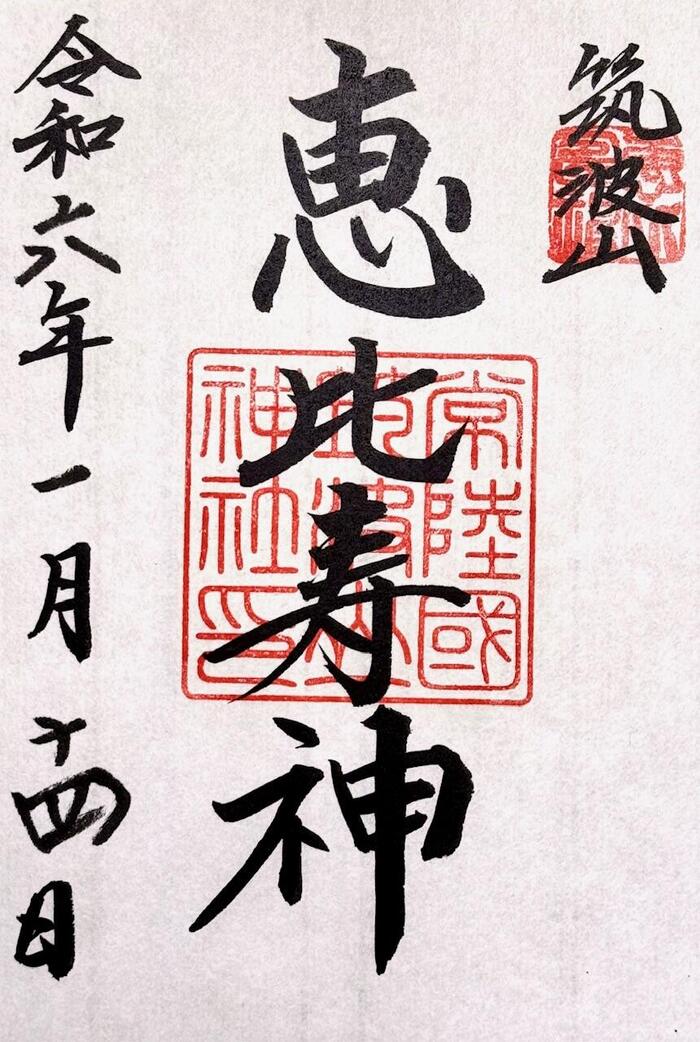 筑波山
恵比寿神
常陸國
筑波山
神社印
令和六年一月十四日